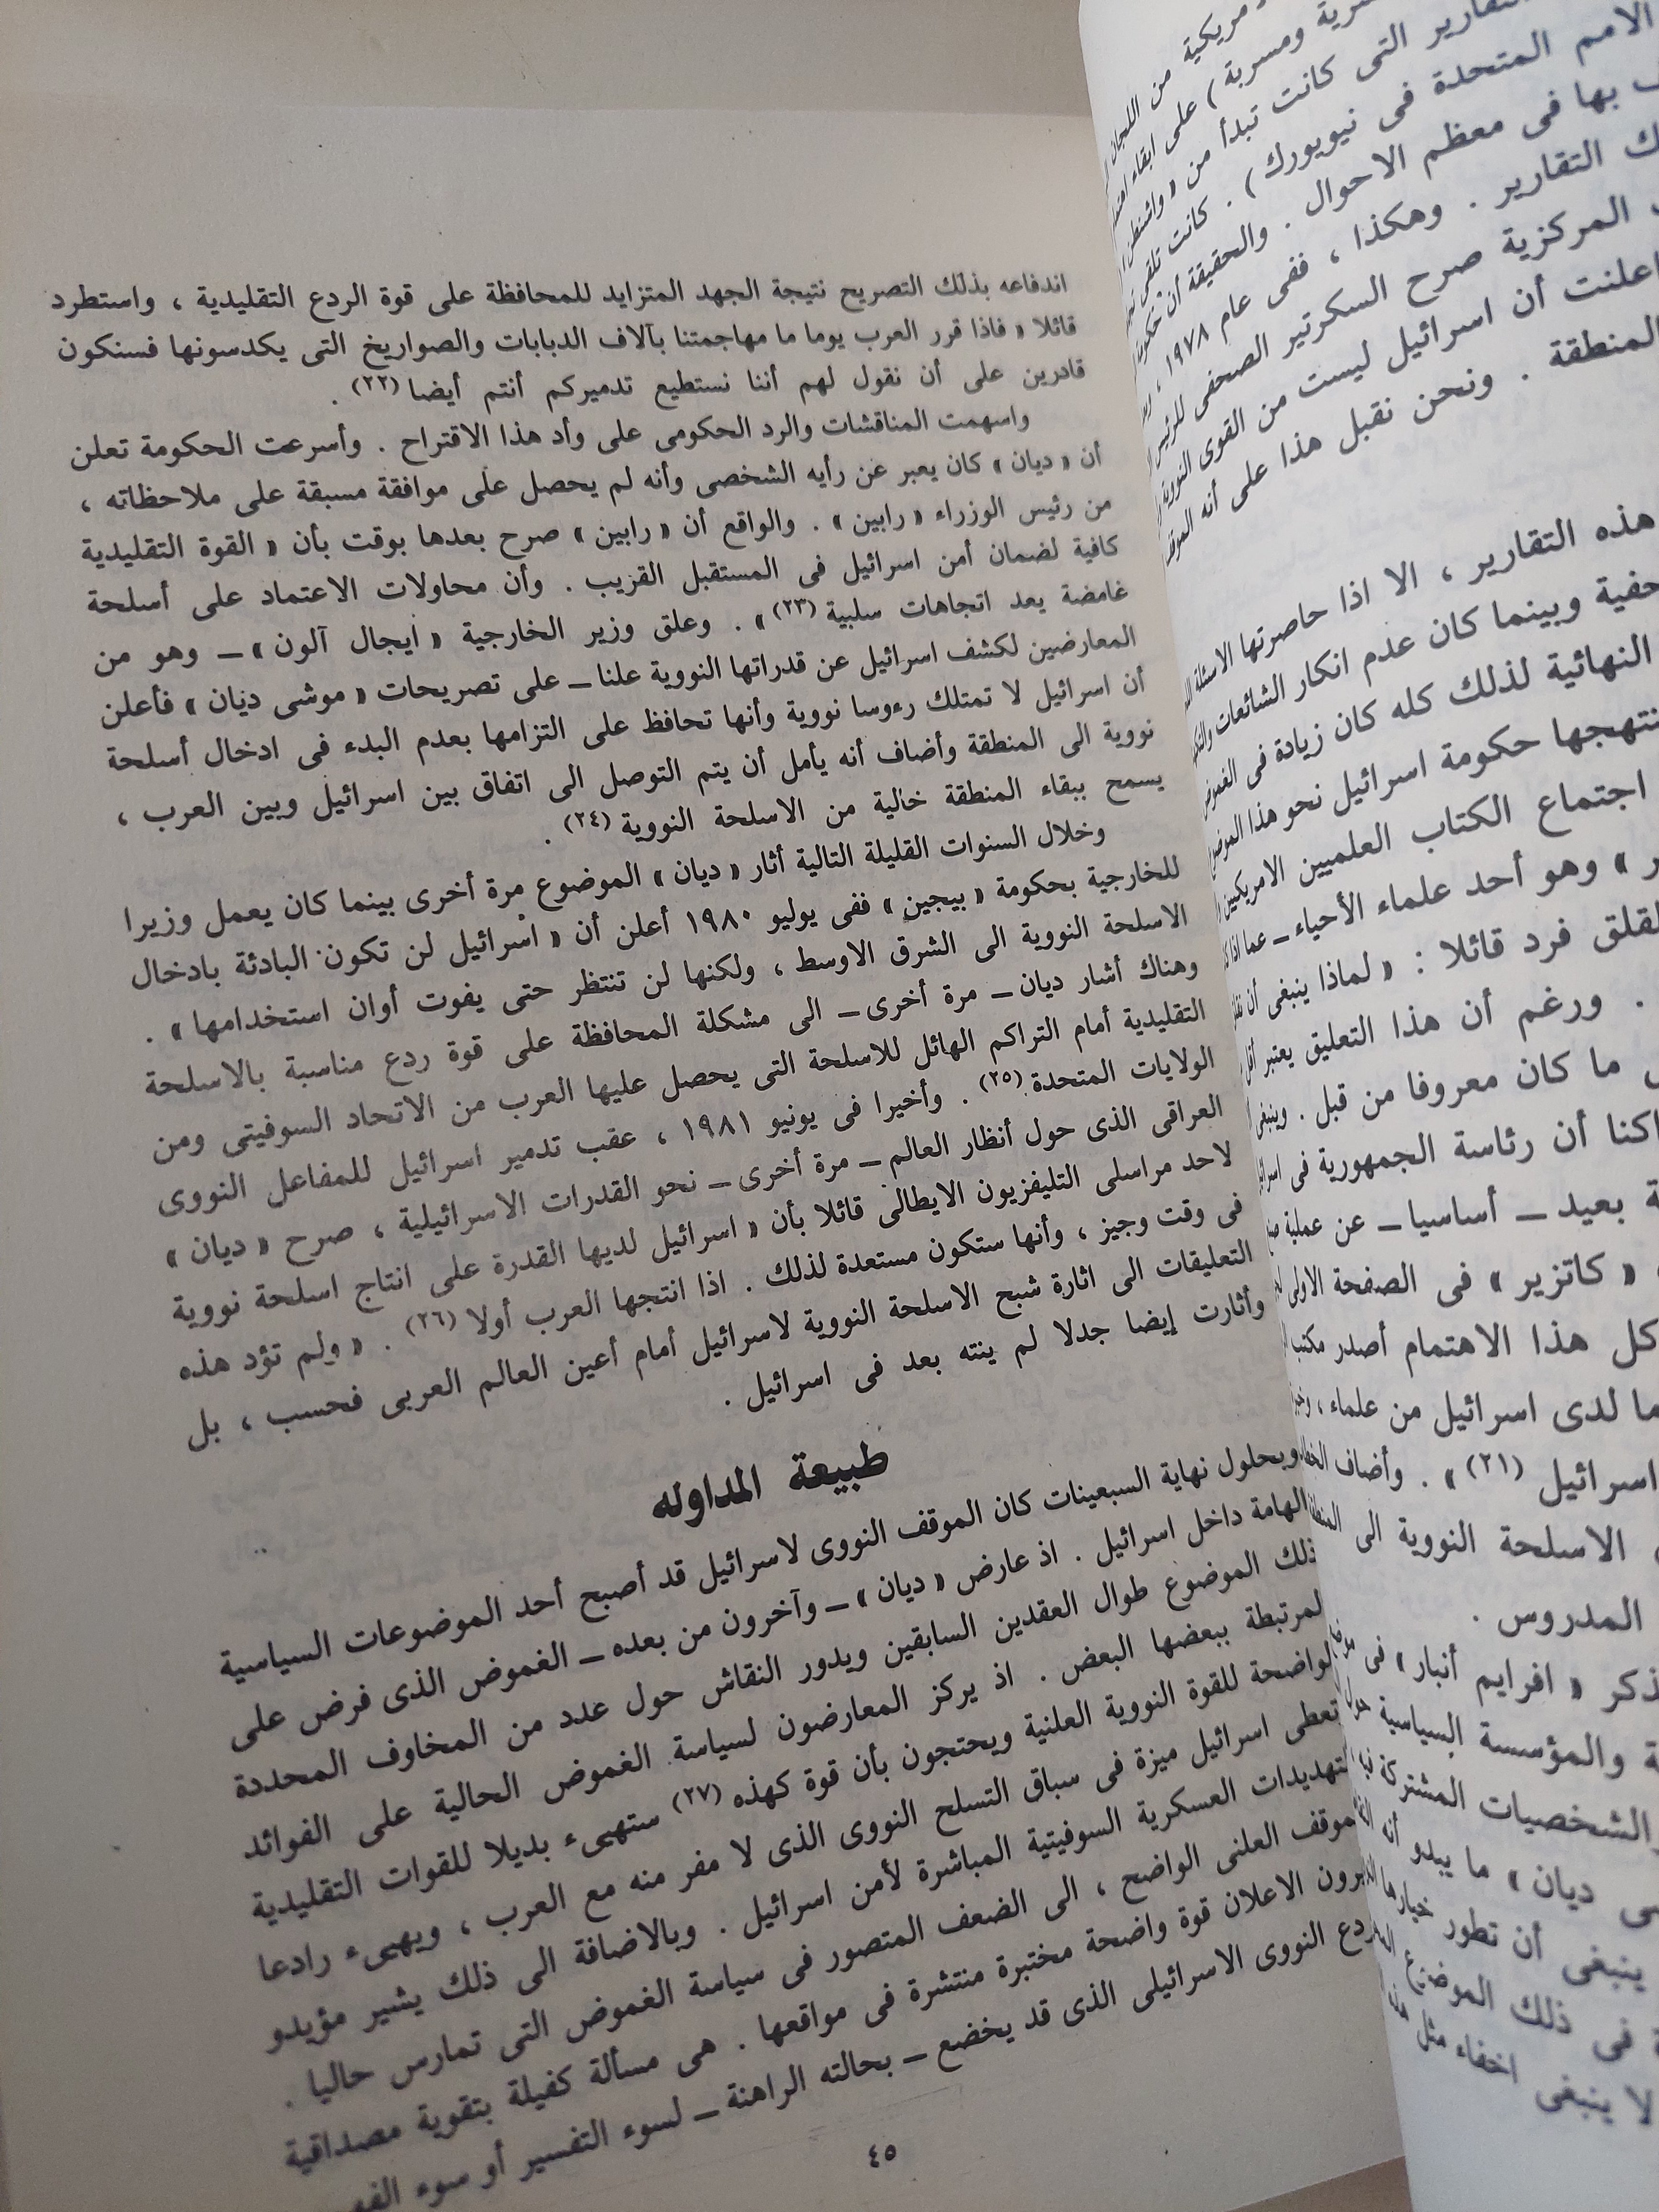 اندفاعه بذلك التصريح نتيجة الجهد المتزايد للمحافظة على قوة الردع التقليدية ، واستطرد
قائلا « فاذا قرر العرب يوما ما مهاجمتنا بآلاف الدبابات والصواريخ التى يكدسونها فسنكون
قادرين على أن نقول لهم أننا نستطيع تدميركم أنتم أيضا (٢٢) .
واسهمت المناقشات والرد الحكومى على وأد هذا الاقتراح . وأسرعت الحكومة تعلن
أن « ديان » كان يعبر عن رأيه الشخصى وأنه لم يحصل على موافقة مسبقة على ملاحظاته ،
من رئيس الوزراء « رابين » . والواقع أن « رابين » صرح بعدها بوقت بأن « القوة التقليدية
كافية لضمان أمن اسرائيل فى المستقبل القريب . وأن محاولات الاعتماد على أسلحة
غامضة يعد اتجاهات سلبية (٢٣) » . وعلق وزير الخارجية « ايجال آلون » ــ وهو من
المعارضين لكشف اسرائيل عن قدراتها النووية علنا ــ على تصريحات « موشى ديان » فأعلن
أن اسرائيل لا تمتلك رءوسا نووية وأنها تحافظ على التزامها بعدم البدء فى ادخال أسلحة
نووية الى المنطقة وأضاف أنه يأمل أن يتم التوصل الى اتفاق بين اسرائيل وبين العرب ،
يسمح ببقاء المنطقة خالية من الاسلحة النووية (٢٤) .
وخلال السنوات القليلة التالية أثار « ديان » الموضوع مرة أخرى بينما كان يعمل وزيرا
للخارجية بحكومة « بيجين » ففى يوليو ١٩٨٠ أعلن أن « اسرائيل لن تكون البادئة بادخال
الاسلحة النووية الى الشرق الاوسط ، ولكنها لن تنتظر حتى يفوت أوان استخدامها » .
وهناك أشار ديان ــ مرة أخرى ــ الى مشكلة المحافظة على قوة ردع مناسبة بالاسلحة
التقليدية أمام التراكم الهائل للاسلحة التى يحصل عليها العرب من الاتحاد السوفيتى ومن
الولايات المتحدة (٢٥) . وأخيرا فى يونيو ١٩٨١ ، عقب تدمير اسرائيل للمفاعل النووى
العراقى الذى حول أنظار العالم ــ مرة أخرى ــ نحو القدرات الاسرائيلية ، صرح « ديان »
لاحد مراسلى التليفزيون الايطالى قائلا بأن « اسرائيل لديها القدرة على انتاج اسلحة نووية
فى وقت وجيز ، وأنها ستكون مستعدة لذلك . اذا انتجها العرب أولا (٢٦) . « ولم تؤد هذه
التعليقات الى اثارة شبح الاسلحة النووية لاسرائيل أمام أعين العالم العربى فحسب ، بل
وأثارت إيضا جدلا لم ينته بعد فى اسرائيل .
طبيعة المداوله
وبحلول نهاية السبعينات كان الموقف النووى لاسرائيل قد أصبح أحد الموضوعات السياسية
الهامة داخل اسرائيل . اذ عارض « ديان » ــ وآخرون من بعده ــ الغموض الذى فرض على
ذلك الموضوع طوال العقدين السابقين ويدور النقاش حول عدد من المخاوف المحددة
لمرتبطة ببعضها البعض . اذ يركز المعارضون لسياسة الغموض الحالية على الفوائد
لواضحة للقوة النووية العلنية ويحتجون بأن قوة كهذه (٢٧) ستهىء بديلا للقوات التقليدية
تعطى اسرائيل ميزة فى سباق التسلح النووى الذى لا مفر منه مع العرب ، ويهىء رادعا
لتهديدات العسكرية السوفيتية المباشرة لأمن اسرائيل . وبالاضافة الى ذلك يشير مؤيدو
موقف العلنى الواضح ، الى الضعف المتصور فى سياسة الغموض التى تمارس حاليا .
يرون الاعلان قوة واضحة مختبرة منتشرة فى مواقعها . هى مسألة كفيلة بتقوية مصداقية
ردع النووى الاسرائيلى الذى قد يخضع ــ بحالته الراهنة ــ لسوء التفسير أو سوء
٤٥
مريكية من اللجان
سرية ومسربة ) على ابقاء
التقارير التى كانت تبدأ من « واشنطن
الامم المتحدة فى نيويورك ) . كانت تلقى
بها فى معظم الاحوال . والحقيقة أن حكومة
ك التقارير . وهكذا ، ففى عام ١٩٧٨ ،
المركزية صرح السكرتير الصحفى للرئيس
اعلنت أن اسرائيل ليست من القوى النووية
المنطقة . ونحن نقبل هذا على أنه الموقف
هذه التقارير ، الا اذا حاصرتها الاسئلة
حفية وبينما كان عدم انكار الشائعات
النهائية لذلك كله كان زيادة فى الغموض
نتهجها حكومة اسرائيل نحو هذا الموضوع
اجتماع الكتاب العلميين الامريكيين
ر » وهو أحد علماء الأحياء ــ عما اذا
لقلق فرد قائلا : « لماذا ينبغى أن
. ورغم أن هذا التعليق يعتبر أقل
ما كان معروفا من قبل . وينبغى
اكنا أن رئاسة الجمهورية فى
ة بعيد ــ أساسيا ــ عن عملية
« كاتزير » فى الصفحة الاولى
كل هذا الاهتمام أصدر مكتب
ما لدى اسرائيل من علماء ،
اسرائيل (٢١) » . وأضاف
الاسلحة النووية الى
المدروس .
ذكر « افرايم أنبار » فى
ة والمؤسسة السياسية حول
الشخصيات المشتركة
ى ديان » ما يبدو أنه
ينبغى أن تطور خيارها
فى ذلك الموضوع
لا ينبغى اخفاء مثل